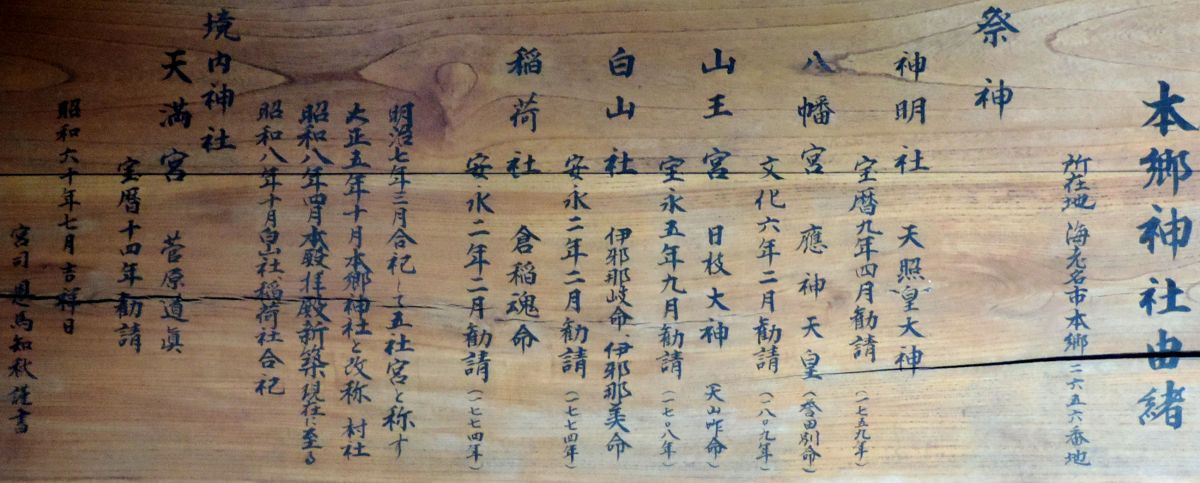 本郷神社由緒
所在地 海老名市本郷二六五六番地
祭神
神明社 天照皇大神
宝暦九年四月勧請(一七五九年)
八幡宮 應神天皇(誉田別命)
文化六年二月勧請(一八〇九年)
山王宮 日枝大神(大山咋命)
宝永五年九月勧請(一七〇八年)
白山社 伊邪那岐命 伊邪那美命
安永二年二月勧請(一七七四年)
稲荷社 倉稲魂命
安永二年二月勧請(一七七四年)
明治七年三月合祀して五社宮と称す
大正五年十月本郷神社と改称 村社
昭和八年四月本殿拝殿新築現在に至る
昭和八年十月白山社稲荷社合祀
境内神社
天満宮 菅原道眞
宝暦十四年勧請
昭和六十年七月吉祥日
宮司 恩馬知秋謹書